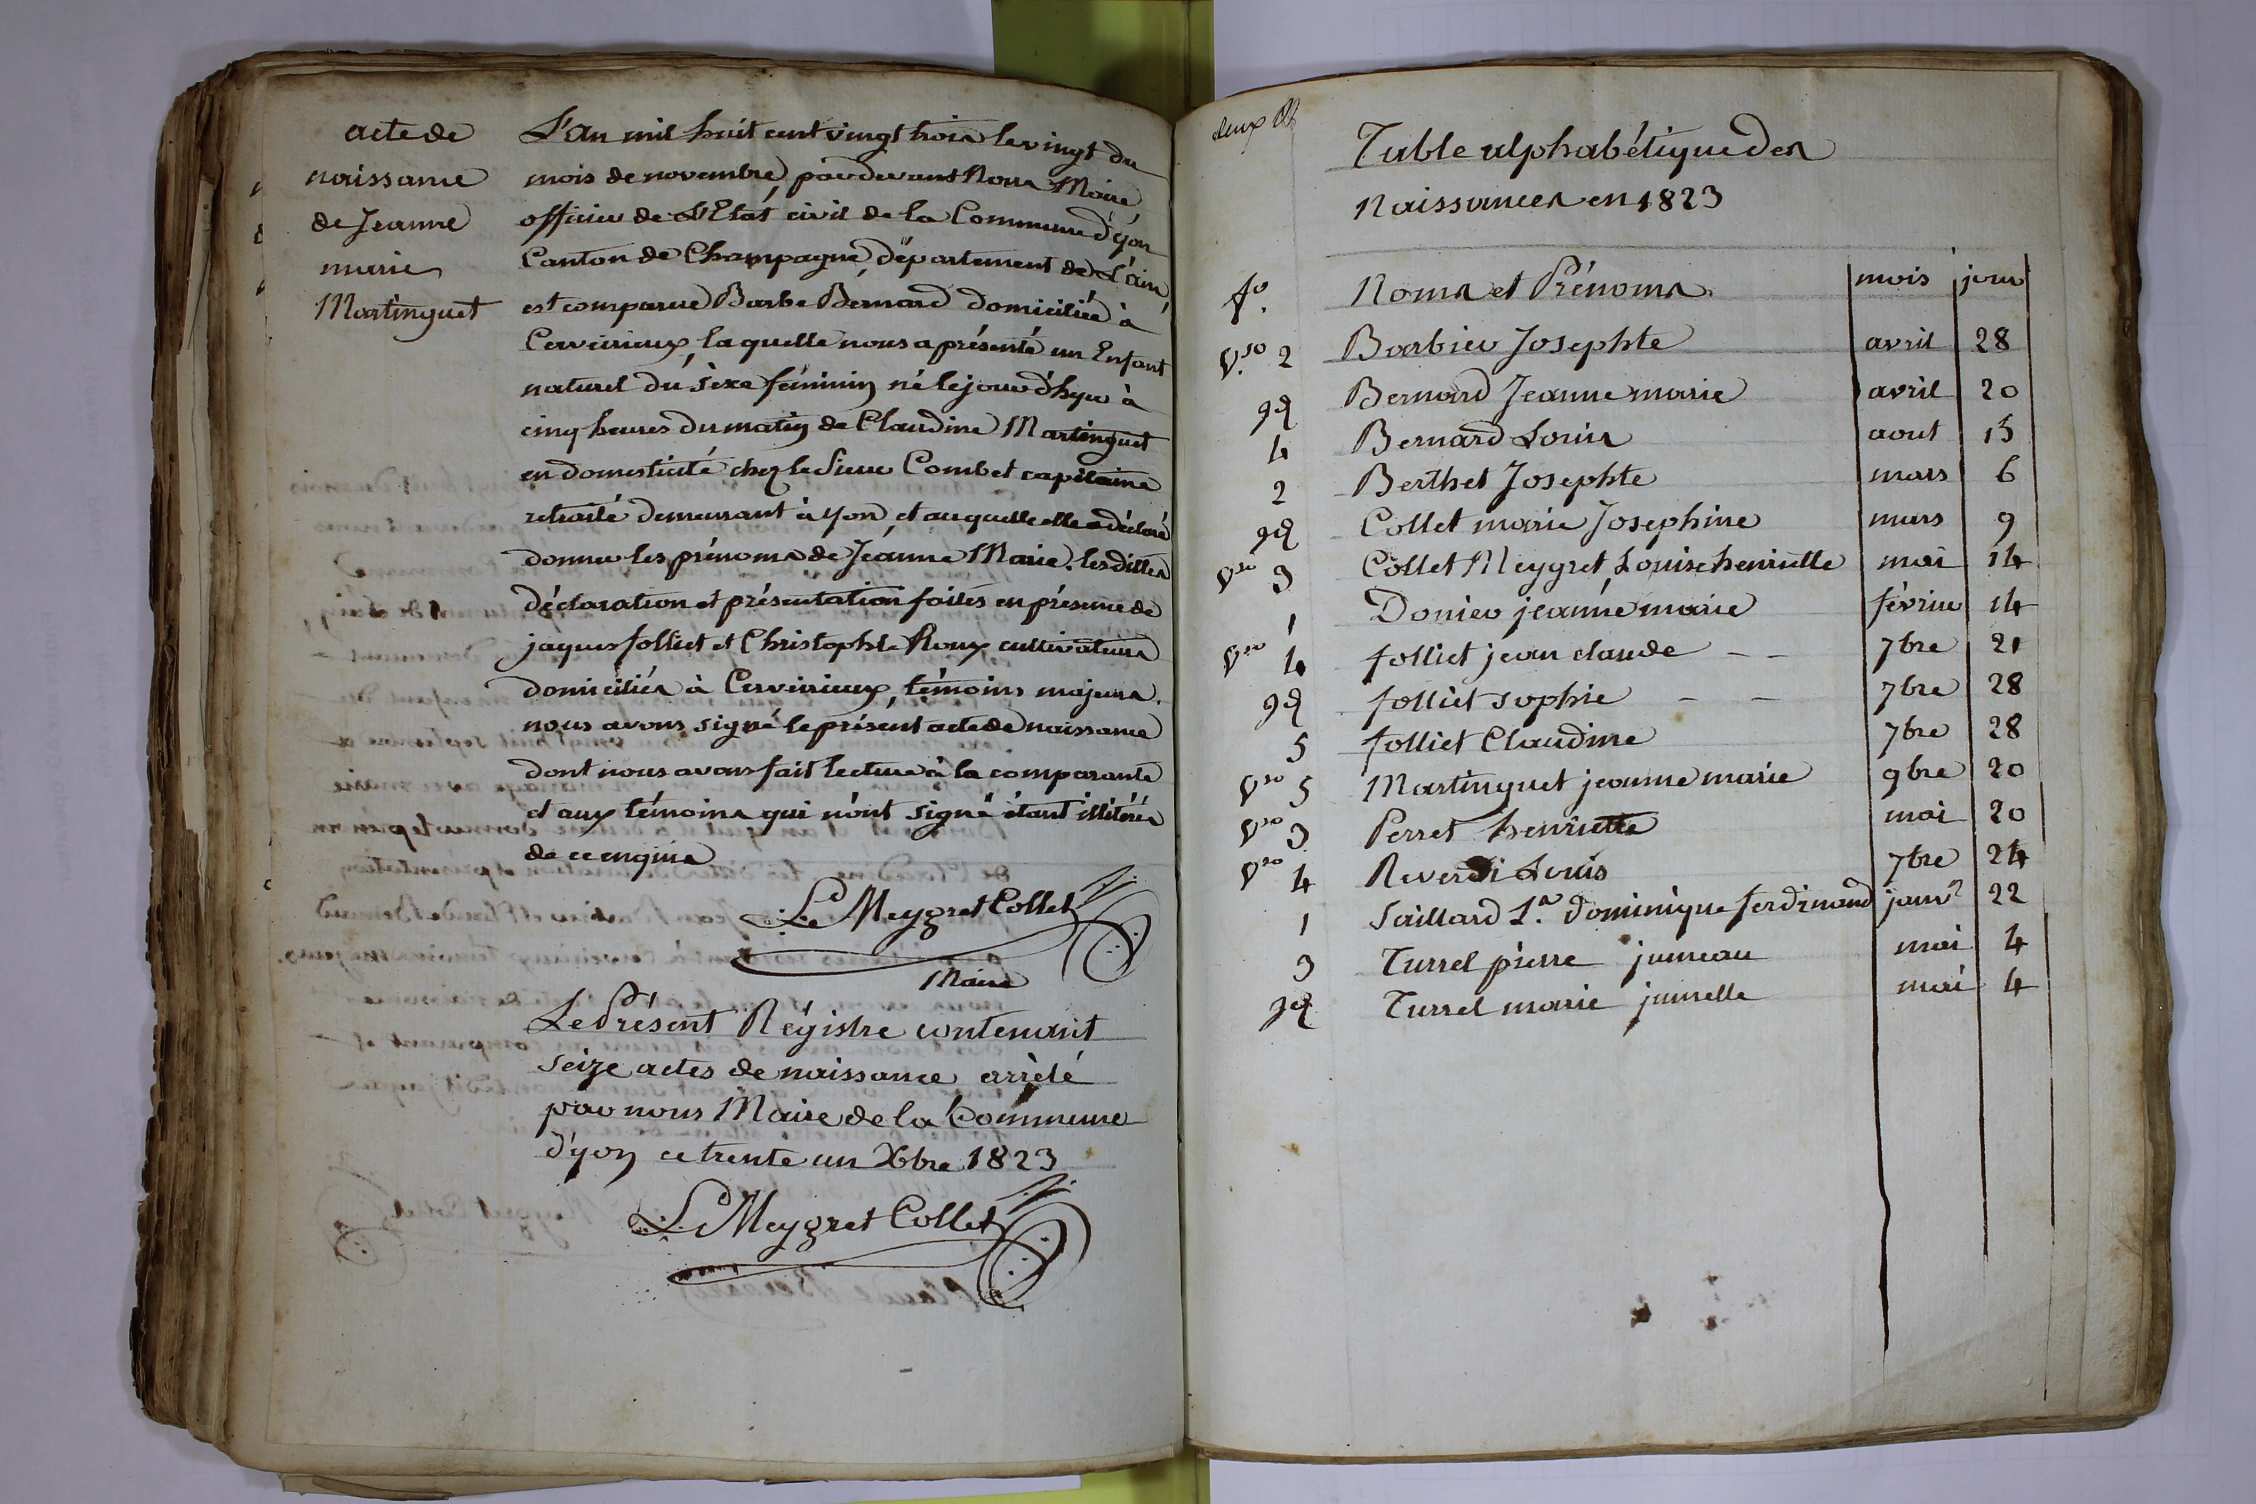 acte de
naissance
de Jeanne
marie
Martinguet
L'an mil huit cent vingt trois le vingt du
mois de novembre, par devant Nous Maire
officier de L'Etat civil de la Commune d'yon
Canton de Champagne, département de L'ain,
est comparue Barbe Bernard domiciliée à
Cerveirieux, laquelle nous a présenté un Enfant
naturel du sèxe féminin né le jour d'hyer à
cinq heures du matin de Claudine Martinguet
en domesticité chez le Sieur Combet capitaine
retraité demeurant à yon, et auquelle elle a déclaré
donner les prénoms de Jeanne Marie. les dittes
déclaration et présentation faites en présence de
jaques folliet et Christophle Roux cultivateurs
domiciliés à Cerveirieux, témoins majeurs.
nous avons signé le présent acte de naissance
dont nous avons fait lecture à la comparante
et aux témoins qui n'ont signé étant illitérés
de ce enquis
Le Meygret Collet
Maire
Le Présent Régistre contenant
seize actes de naissance arrêté
par nous Maire de la Commune
d'yon ce trente un Xbre 1823
Le Meygret Collet
deux
Table alphabétique des
Naissances en 1823
fo. Noms et Prénoms. mois jour
Vso 2 Barbier Josephte avril 28
Bernard Jeanne marie avril 20
4 Bernard Louis aout 15
2 Berthet Josephte mars 6
Collet marie Josephine mars 9
Vso 3 Collet Meygret, Louise henriette mai 14
1 Donier jeanne marie févrieu 14
Vso 4 folliet jean claude - - 7bre 21
folliet sophie - - 7bre 28
5 folliet Claudine 7bre 28
Vso 5 Martinguet jeanne marie 9bre 20
Vso 3 Perret henriette mai 20
Vso 4 Reverdi Louis 7bre 24
1 Saillard Ls. dominique ferdinand janvr 22
3 Turrel pierre jumeau mai 4
Turrel marie jumelle mai 4